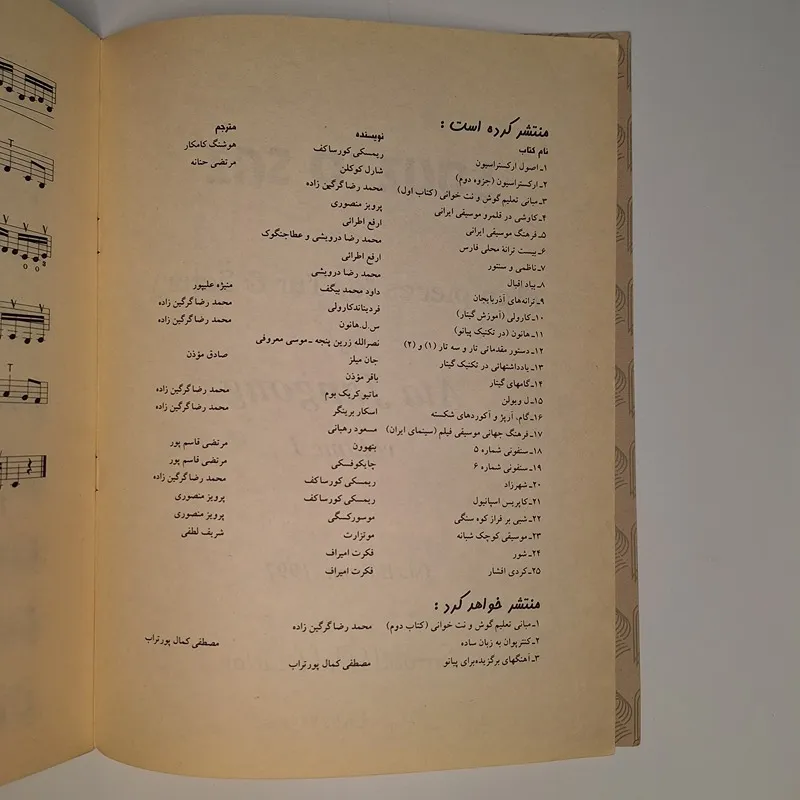 منتشر کرده است :
نام کتاب نویسنده مترجم
۱ـ اصول ارکستراسیون ریمسکی کورساکف هوشنگ کامکار
۲ـ ارکستراسیون (جزوه دوم) شارل کوکلن مرتضی حنانه
۳ـ مبانی تعلیم گوش و نت خوانی (کتاب اول) محمد رضا گرگین زاده
۴ـ کاوشی در قلمرو موسیقی ایرانی پرویز منصوری
۵ـ فرهنگ موسیقی ایرانی ارفع اطرائی
۶ـ بیست ترانهٔ محلی فارس محمد رضا درویشی و عطاجنگوک
۷ـ ناظمی و سنتور ارفع اطرائی
۸ـ بیاد اقبال محمد رضا درویشی
۹ـ ترانه‌های آذربایجان داود محمد بیگف منیژه علیپور
۱۰ـ کارولی (آموزش گیتار) فردیناندکارولی محمد رضا گرگین زاده
۱۱ـ هانون (در تکنیک پیانو) س.ل.هانون محمد رضا گرگین زاده
۱۲ـ دستور مقدماتی تار و سه تار (۱) و (۲) نصرالله زرین پنجه ـ موسی معروفی
۱۳ـ یادداشتهائی در تکنیک گیتار جان میلز صادق مؤذن
۱۴ـ گامهای گیتار باقر مؤذن
۱۵ـ ل ویولن ماتیو کریک بوم محمد رضا گرگین زاده
۱۶ـ گام، آرپژ و آکوردهای شکسته اسکار برینگر محمد رضا گرگین زاده
۱۷ـ فرهنگ جهانی موسیقی فیلم (سینمای ایران) مسعود رهبانی
۱۸ـ سنفونی شماره ۵ بتهوون مرتضی قاسم پور
۱۹ـ سنفونی شماره ۶ چایکوفسکی مرتضی قاسم پور
۲۰ـ شهرزاد ریمسکی کورساکف محمد رضا گرگین زاده
۲۱ـ کاپریس اسپانیول ریمسکی کورساکف پرویز منصوری
۲۲ـ شبی بر فراز کوه سنگی موسورگسگی پرویز منصوری
۲۳ـ موسیقی کوچک شبانه موتزارت شریف لطفی
۲۴ـ شور فکرت امیراف
۲۵ـ کردی افشار فکرت امیراف
منتشر خواهد کرد :
۱ـ مبانی تعلیم گوش و نت خوانی (کتاب دوم) محمد رضا گرگین زاده
۲ـ کنترپوان به زبان ساده مصطفی کمال پورتراب
۳ـ آهنگهای برگزیده برای پیانو مصطفی کمال پورتراب